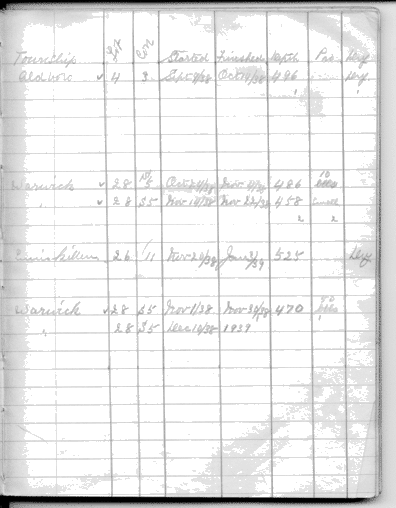 Township Lot Con Started Finished Depth Dry
Aldboro ✓ 4 3 Sept 9/38 Oct 19/38 486 Dry
Warwick ✓ 28 5 Oct 24/38 Nov 486 10 bbls
" ✓ 28 S5 Nov 14/38 Nov 22/38 458 Small
2 2
Enniskillen 26 11 Nov 28/38 Jan 3/39 525 Dry
Warwick ✓ 28 S5 Nov 1/38 Nov 30/38 470 bbls
" 28 S5 Dec 10/38 1939